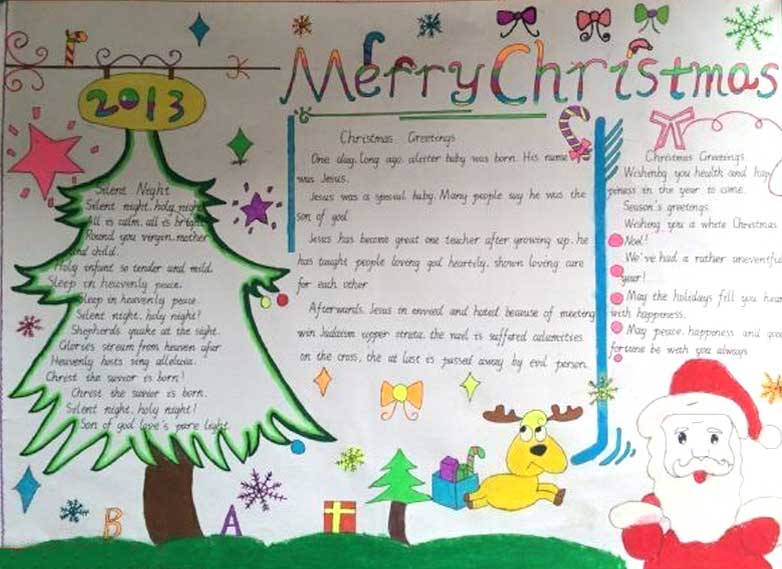 Merry Christmas
2013
Silent Night
Silent night, holy night
All is calm, all is bright
Round you virgin, mother
and child.
Holy infant so tender and mild.
Sleep in heavenly peace.
Sleep in heavenly peace.
Silent night, holy night!
Shepherds quake at the sight.
Glories stream from heaven afar
Heavenly hosts sing alleluia.
Christ the savior is born!
Christ the savior is born.
Silent night, holy night!
Son of god love's pure light
B A
Christmas Greetings
One day, long ago, a baby was born. His name
was Jesus.
Jesus was a special baby. Many people say he was the
son of god
Jesus has become great one teacher after growing up, he
has taught people loving god heartily, shown loving care
for each other
Afterwards, Jesus in envied and hated because of meeting
win Judaism upper strata, the nail is suffered calamities
on the cross, the at last is passed away by evil person.
Christmas Greetings
Wishenby you health and hap
piness in the year to come.
Season's greetings.
Wishing you a white Christmas
Noel!
We've had a rather uneventful
year!
May the holidays fill you hea
with happiness.
May peace, happiness and good
fortune be with you always